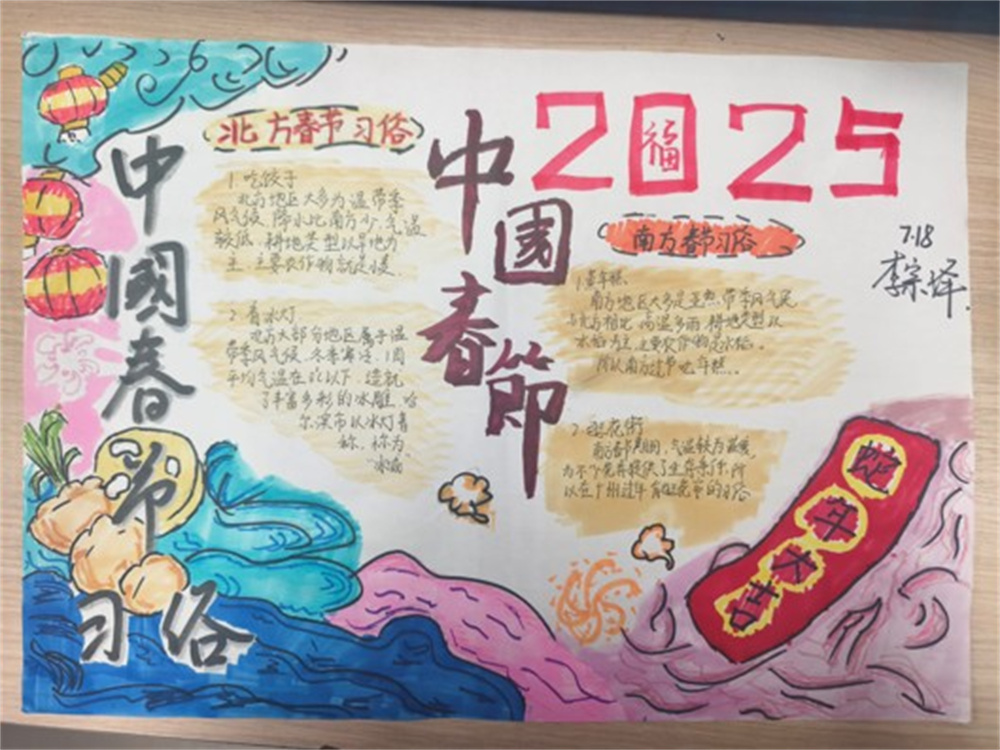 中國春节习俗
北方春节习俗
1. 吃饺子
北方地区大多为温带季
风气候,降水比南方少,气温
较低,耕地类型以旱地为
主,主要农作物就是
2. 看冰灯
北方大部分地区属于温
带季风气候,冬季寒冷,1月
平均气温在0℃以下,造就
了丰富多彩的冰雕,哈
尔滨市以冰灯著
称,称为
中国春節
2025
福
南方春节习俗
7.18
李宗烨
南方地区大多是亚热带季风气候
与北方相比,高温多雨,耕地类型以
水稻为主,主要农作物是水稻。
所以南方过节吃年糕...
2. 逛花街
南方春节期间,气温较为温暖,
为不少花卉提供了生存条件,所
以在广州过年有逛花街的习俗
蛇年大吉